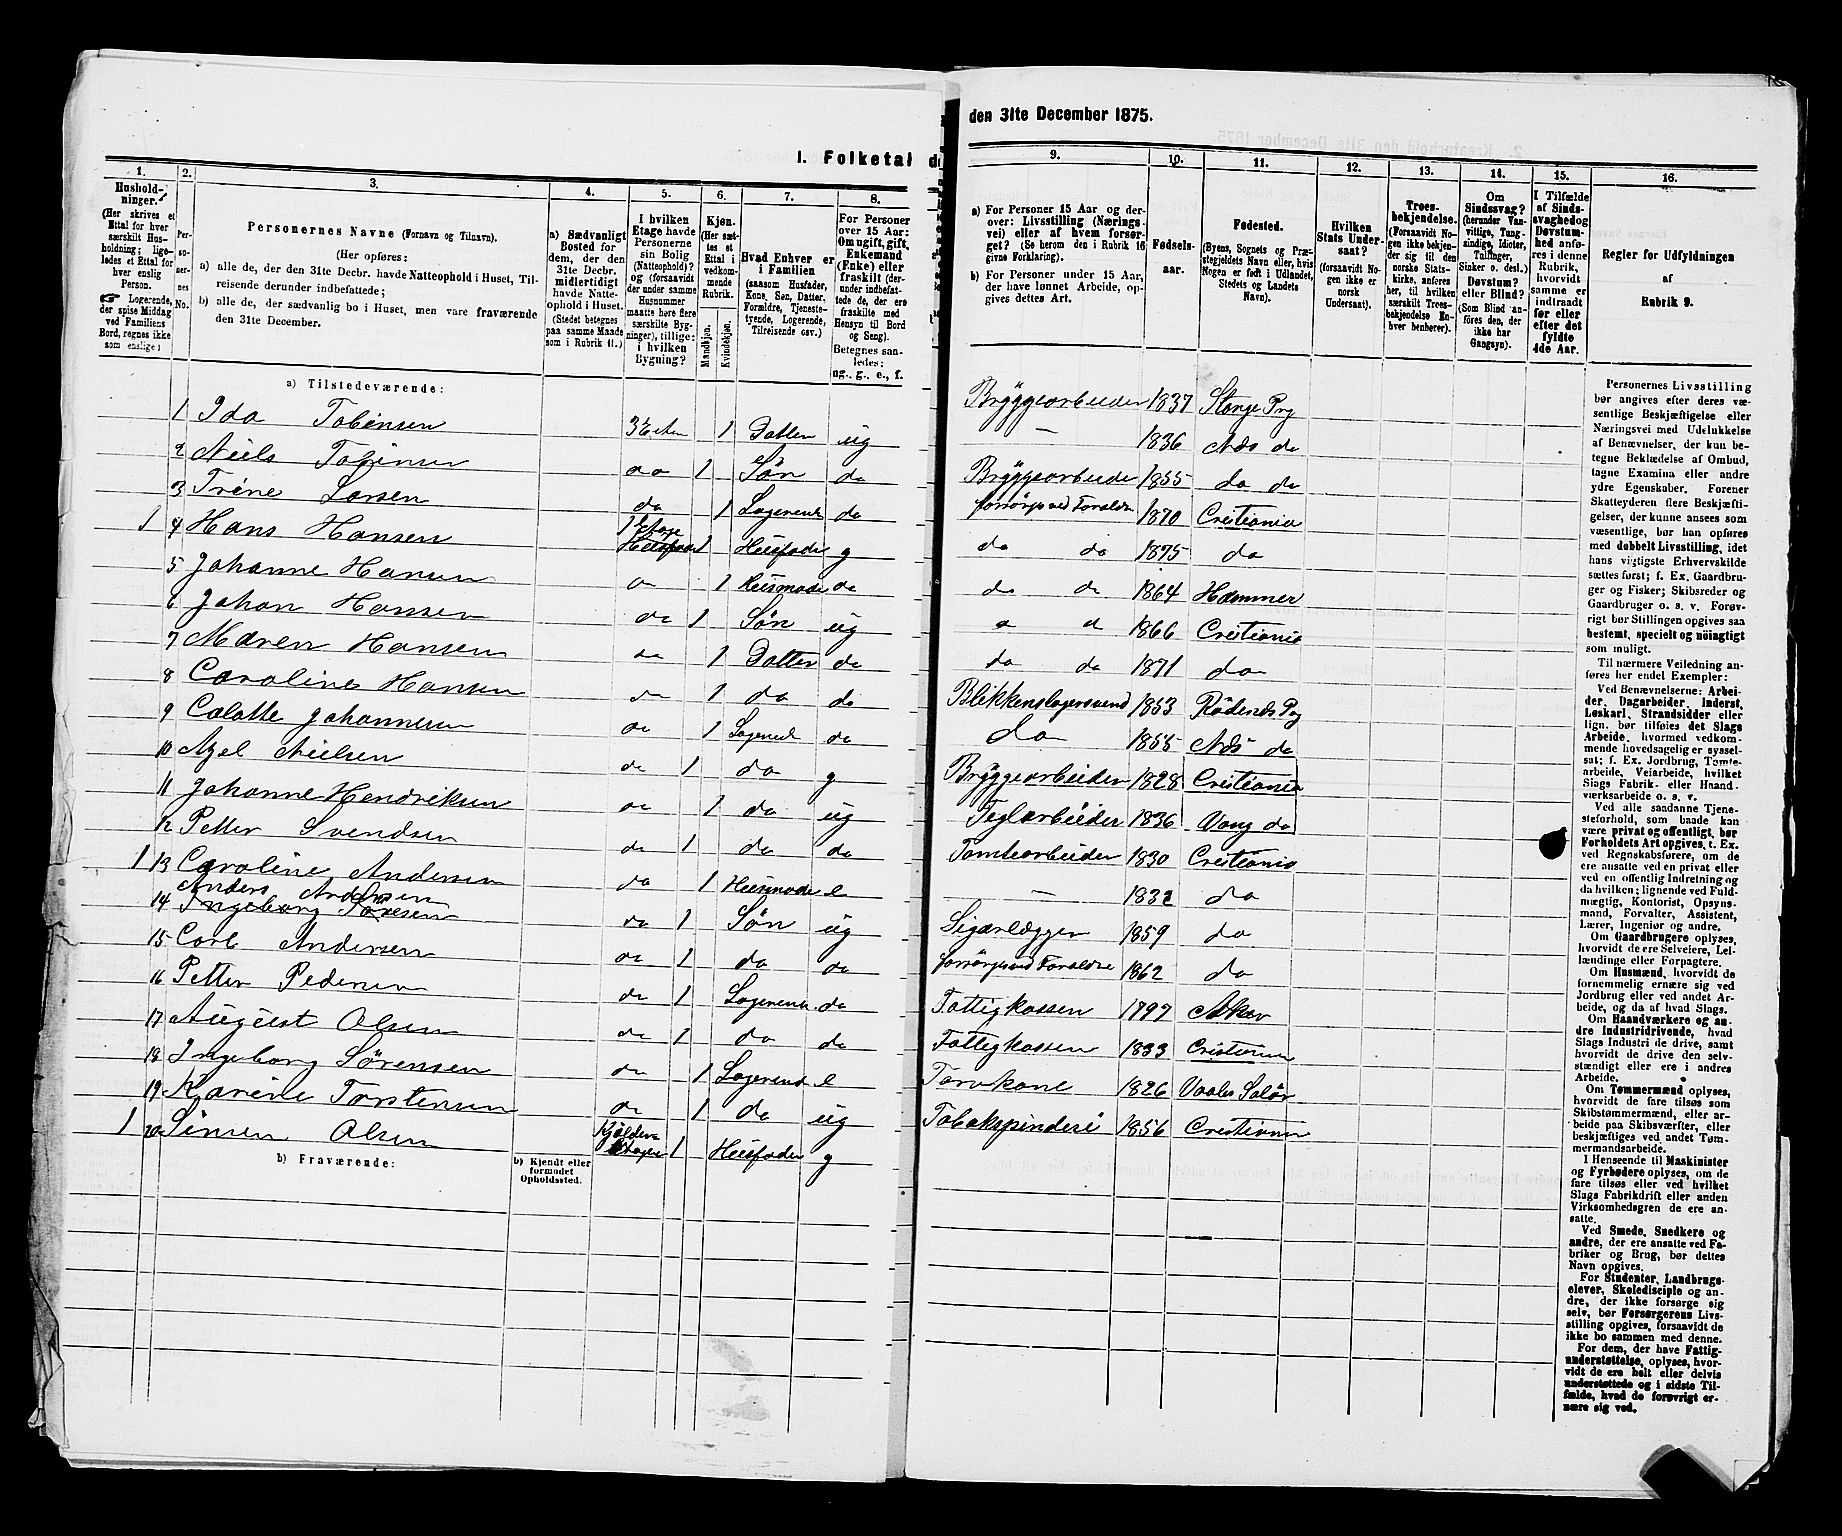 I. Folketal d
den 31te December 1875.
1.
Hushold-
ninger.
(Her skrives et
Ettal for hver
særskilt Hus-
holdning; lige-
ledes et Ettal for
hver enslig
Person.
☛ Logerende,
der spise Middag
ved Familiens
Bord, regnes ikke
som enslige)
2.
Per-
so-
ner-
nes
No.
3.
Personernes Navne (Fornavn og Tilnavn).
(Her opføres:
a) alle de, der den 31te Decbr. havde Natteophold i Huset, Til-
reisende derunder indbefattede;
b) alle de, der sædvanlig bo i Huset, men vare fraværende
den 31te December.
4.
a) Sædvanligt
Bosted for
dem, der den
31te Decbr.
midlertidigt
havde Natte-
ophold i Huset.
(Stedet betegnes
paa samme Maade
som i Rubrik 11.)
5.
I hvilken
Etage havde
Personerne
sin Bolig
(Natteophold)?
og (forsaavidt
der under samme
Husnummer
maatte høre flere
særskilte Byg-
ninger), tillige:
i hvilken
Bygning?
6.
Kjøn.
(Her sæt-
tes et
Ettal i
vedkom-
mende
Rubrik.
Mandkjøn.
Kvindekjøn.
7.
Hvad Enhver er
i Familien
(saasom Husfader,
Kone, Søn, Datter,
Forældre, Tjeneste-
tyende, Logerende,
Tilreisende osv.)
8.
For Personer
over 15 Aar:
Om ugift, gift,
Enkemand
(Enke) eller
fraskilt (der-
under indbefat-
tede de, der ere
fraskilte med
Hensyn til Bord
og Seng).
Betegnes saa-
ledes:
ug., g., e., f.
9.
a) For Personer 15 Aar og der-
over: Livsstilling (Nærings-
vei) eller af hvem forsør-
get? (Se herom den i Rubrik 16
givne Forklaring).
b) For Personer under 15 Aar,
der have lønnet Arbeide, op-
gives dettes Art.
10.
Fødsels-
aar.
11.
Fødested.
(Byens, Sognets og Præ-
stegjeldets Navn eller, hvis
Nogen er født i Udlandet,
Stedets og Landets
Navn).
12.
Hvilken
Stats Under-
saat?
(forsaavidt No-
gen ikke er
norsk
Undersaat).
13.
Troes-
bekjendelse.
(Forsaavidt No-
gen ikke bekjen-
der sig til den
norske Stats-
kirke, anføres
her, til hvilken
særskilt Troes-
bekjendelse En-
hver benhører).
14.
Om
Sindssvag?
(herunder Van-
vittige, Tung-
sindige, Idioter,
Tullinger,
Sinker o. desl.)
Døvstum?
eller Blind?
(Som Blind an-
føres den, der
ikke har
Gangsyn).
15.
I Tilfælde
af Sinds-
svaghed og
Døvstum-
hed anfø-
res i denne
Rubrik,
hvorvidt
samme er
indtraadt
før eller
efter det
fyldte
4de Aar.
16.
Regler for Udfyldningen
af
Rubrik 9.
a) Tilstedeværende:
1 Ida Tobinsen 3 Eta 1 Datter ug Bryggearbeider 1837 Stange Prg
2 Niels Tobinsen do 1 Søn do — 1836 Næs do
3 Trine Larsen do 1 Logerende do Bryggearbeider 1855 do do
1 4 Hans Hansen 1 Etage 1 Huusfader g forsørges ved Forældre 1870 Cristiania
5 Johanne Hansen do 1 Huusmoder do do do 1875 do
6 Johan Hansen do 1 Søn ug do do 1864 Hammer
7 Maren Hansen do 1 Datter do do do 1866 Cristiania
8 Caroline Hansen do 1 do do do do 1871 do
9 Calotte Johannesen do 1 Logerende do Blikkenslagersvend 1853 Rødenæs Prg
10 Axel Nielsen do 1 do g do 1855 Næs do
11 Johanne Hendriksen do 1 do ug Bryggearbeider 1828 Cristiania
12 Petter Svendsen do 1 do do Teglarbeider 1836 Vang do
1 13 Caroline Andersen do 1 Huusmoder e Tomtearbeider 1830 Cristiania
Anders Andersen
14 Ingeborg do 1 Søn ug — 1832 do
15 Carl Andersen do 1 do do Sigarlægger 1859 do
16 Petter Pedersen do 1 Logerende do forsørges ved Forældre 1862 do
17 August Olsen do 1 do do Fattigkassen 1797 Aker
18 Ingeborg Sørensen do 1 Logerende e Fattigkassen 1833 Cristiania
19 Karine Torstensen do 1 do ug Torvkone 1826 Vaaler Solør
1 20 Simen Olsen Kjelder Etage 1 Huusfader g Tobakspinderi 1856 Cristiania
b) Fraværende:
b) Kjendt eller
formodet
Opholdssted.
Personernes Livsstilling
bør angives efter deres væ-
sentlige Beskjæftigelse eller
Næringsvei med Udelukkelse
af Benævnelser, der kun be-
tegne Beklædelse af Ombud,
tagne Examina eller andre
ydre Egenskaber. Forener
Skatteyderen flere Beskjæfti-
gelser, der kunne ansees som
væsentlige, bør han opføres
med dobbelt Livsstilling, idet
hans vigtigste Erhvervskilde
sættes først; f. Ex. Gaardbru-
ger og Fisker; Skibsreder og
Gaardbruger o. s. v. Forøv-
rigt bør Stillingen opgives saa
bestemt, specielt og nöiagtigt
som muligt.
Til nærmere Veiledning an-
føres her endel Exempler:
Ved Benævnelserne: Arbei-
der, Dagarbeider, Inderst,
Løskarl, Strandsidder eller
lign. bør tilføies det Slags
Arbeide, hvormed vedkom-
mende hovedsagelig er syssel-
sat; f. Ex. Jordbrug, Tomte-
arbeide, Veiarbeide, hvilket
Slags Fabrik- eller Haand-
værksarbeide o. s. v.
Ved alle saadanne Tjene-
steforhold, som baade kan
være privat og offentligt, bør
Forholdets Art opgives, t. Ex.
ved Regnskabsførere, om de
ere ansatte ved en privat eller
ved en offentlig Indretning og
da hvilken; lignende ved Fuld-
mægtig, Kontorist, Opsyns-
mand, Forvalter, Assistent,
Lærer, Ingeniør og andre.
Om Gaardbrugere oplyses,
hvorvidt de ere Selveiere, Lei-
lændinge eller Forpagtere.
Om Husmænd, hvorvidt de
fornemmelig ernære sig ved
Jordbrug eller ved andet Ar-
beide, og da af hvad Slags.
Om Haandværkere og an-
dre Industridrivende, hvad
Slags Industri de drive, samt
hvorvidt de drive den selv-
stændigt eller ere i andres
Arbeide.
Om Tømmermænd oplyses,
hvorvidt de fare tilsøs som
Skibstømmermænd, eller ar-
beide paa Skibsværfter, eller
beskjæftiges ved andet Tøm-
mermandsarbeide.
I Henseende til Maskinister
og Fyrbødere oplyses, om de
fare tilsøs eller ved hvilket
Slags Fabrikdrift eller anden
Virksomhedsgren de ere an-
satte.
Ved Smede, Snedkere og
andre, der ere ansatte ved Fa-
briker og Brug, bør dettes
Navn opgives.
For Studenter, Landbrugs-
elever, Skoledisciple og an-
dre, der ikke forsørge sig
selv, bør Forsørgerens Livs-
stilling opgives, forsaavidt de
ikke bo sammen med denne.
For dem, der have Fattig-
understøttelse, oplyses, hvor-
vidt de ere helt eller delvis
understøttede og i sidste Til-
fælde, hvad de forøvrigt er-
nære sig ved.